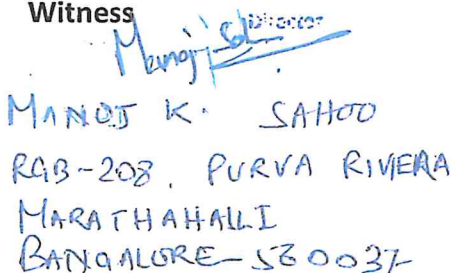 Witness
Manoj Sah
Director
MANOJ K. SAHOO
RGB-208, PURVA RIVIERA
MARATHAHALLI
BANGALORE-560037